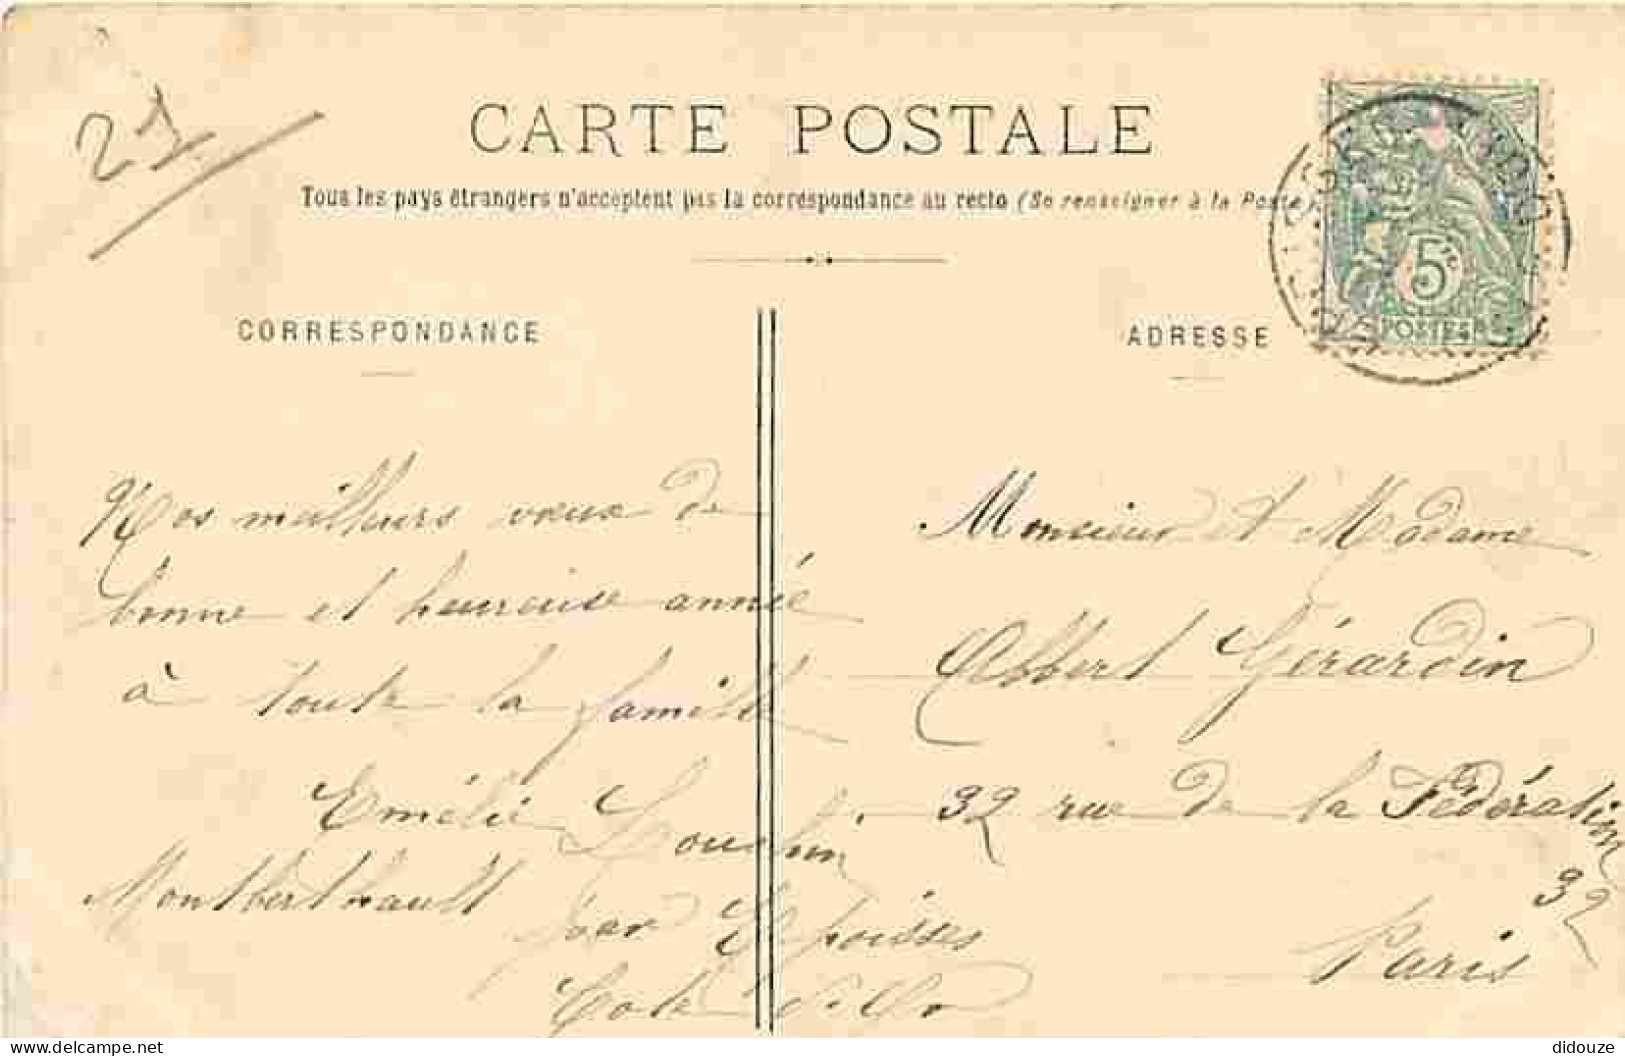 21
CARTE POSTALE
Tous les pays étrangers n'acceptent pas la correspondance au recto (Se renseigner à la Poste)
5c
POSTES
CORRESPONDANCE
ADRESSE
Nos meilleurs vœux de
bonne et heureuse année
à toute la famille
Emélie
Montberthault
par Epoisses
Cote d'Or
Monsieur et Madame
Albert Gérardin
32 rue de la Fédération
32
Paris
didouze
Delcampe.net